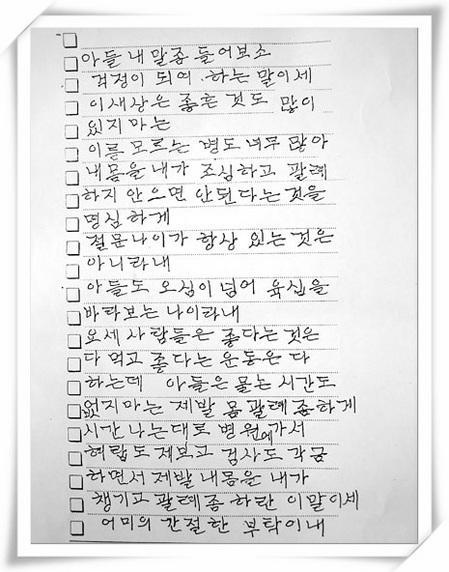 아들 내 말좀 들어보소
걱정이 되여 하는 말이세
이새상은 좋흔 것도 많이
있지마는
이름 모르는 병도 너무 많아
내몸을 내가 조심하고 괄례
하지 안으면 안된다는 것을
명심하게
절문나이가 항상 있는 것은
아니라내
아들도 오십이 넘어 육십을
바라보는 나이라내
요세 사람들은 좋다는 것은
다 먹고 좋다는 운동은 다
하는데 아들은 물논 시간도
없지마는 제발 몸 괄례좀하게
시간 나는대로 병원에가서
혀랍도 재보고 검사도 각금
하면서 제발 내몸은 내가
챙기고 괄례좀 하란 이말이세
어미의 간절한 부탁이내